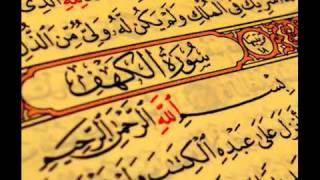 لِلَّهِ الَّذِى
شَرِيكٌ فِى ٱلْمُلْكِ وَلَمْ يَكُن لَّهُۥ وَلِىٌّ مِّنَ ٱلذُّ
سُورَةُ الكَهْفِ
بِسْمِ ٱللَّهِ ٱلرَّحْمَٰنِ ٱلرَّحِيمِ
نزَلَ عَلَىٰ عَبْدِهِ ٱلْكِتَٰبَ وَ